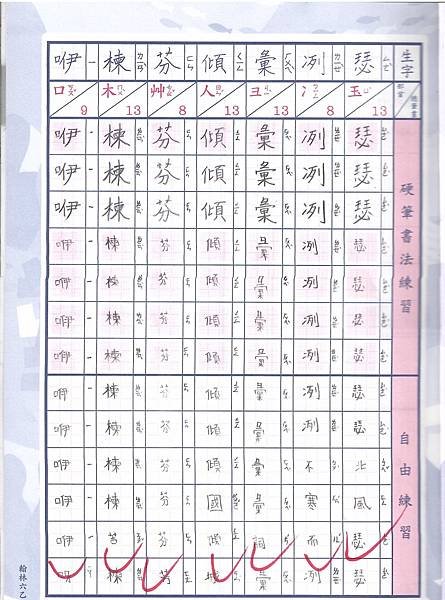 生字 部首 總筆畫 硬筆書法練習 自由練習
瑟 玉 13 瑟 瑟 瑟 瑟 瑟 瑟 瑟 瑟 瑟 北 風 瑟 瑟
冽 冫 8 冽 冽 冽 冽 冽 冽 冽 冽 冽 不 寒 而 冽
彙 彐 13 彙 彙 彙 彙 彙 彙 彙 彙 彙 彙 彙 詞 彙
傾 人 13 傾 傾 傾 傾 傾 傾 傾 傾 傾 傾 國 傾 城
芬 艸 8 芬 芬 芬 芬 芬 芬 芬 芬 芬 芬 芬 芬 芳
楝 木 13 楝 楝 楝 楝 楝 楝 楝 楝 楝 楝 楝 苦 楝
咿 口 9 咿 咿 咿 咿 咿 咿 咿 咿 咿 咿 咿 咿
翰林六乙